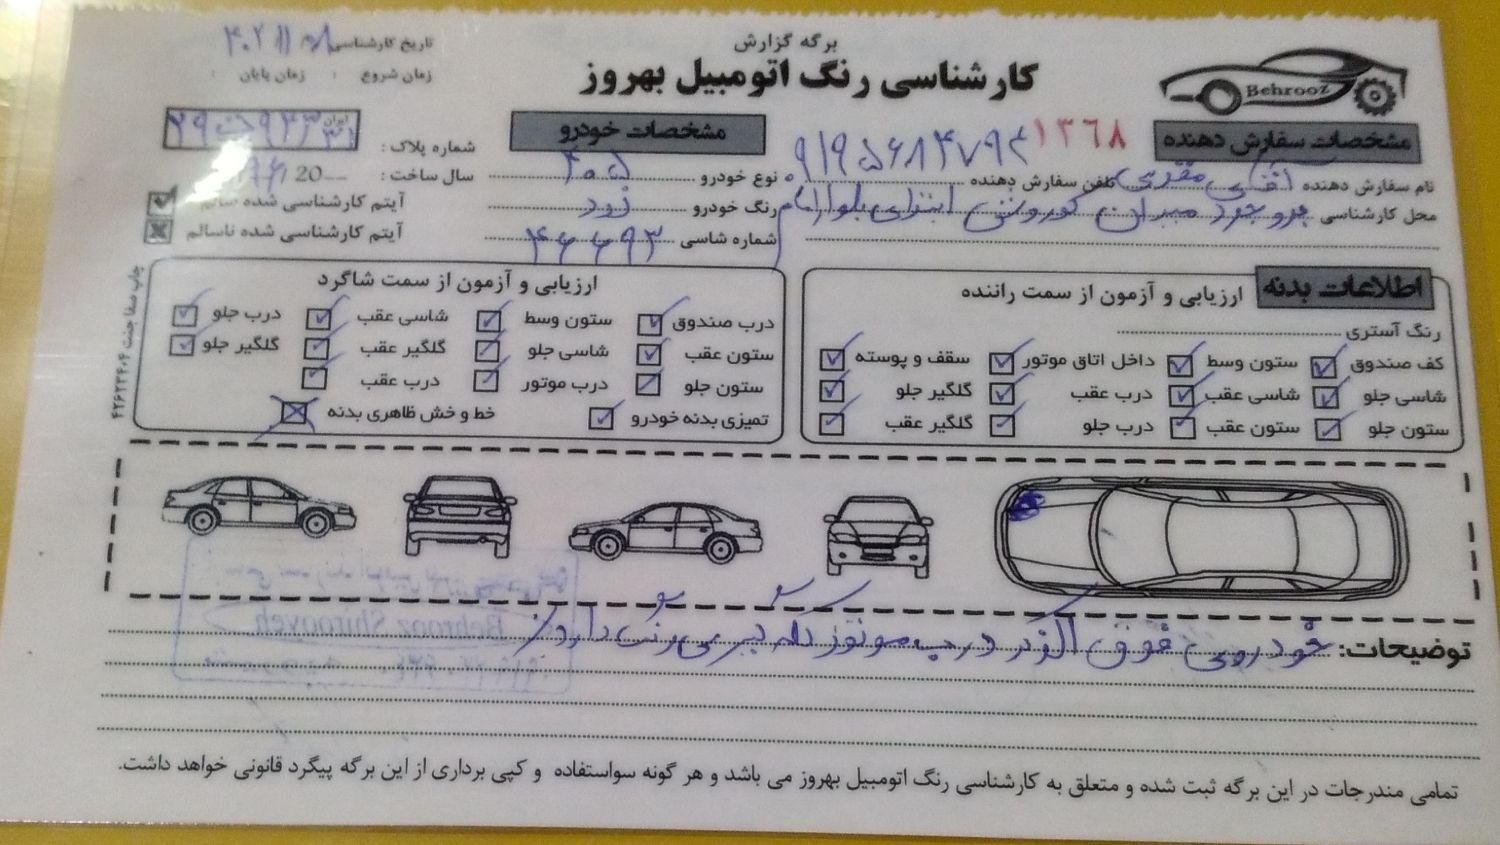 برگه گزارش
کارشناسی رنگ اتومبیل بهروز
Behrooz
تاریخ کارشناسی
زمان شروع : زمان پایان :
مشخصات سفارش دهنده
۱۳۶۸
نام سفارش دهنده
تلفن سفارش دهنده ۰۹۱۹۵۶۸۴۷۹۲
محل کارشناسی بروجرد میدان کوروش ابتدای بلوار امام
مشخصات خودرو
نوع خودرو ۴۰۵
رنگ خودرو
شماره شاسی ۴۶۶۹۳
شماره پلاک : ایران
سال ساخت : 20
آیتم کارشناسی شده سالم
آیتم کارشناسی شده ناسالم
اطلاعات بدنه
ارزیابی و آزمون از سمت راننده
رنگ آستری
کف صندوق ستون وسط داخل اتاق موتور سقف و پوسته
شاسی جلو شاسی عقب درب عقب گلگیر جلو
ستون جلو ستون عقب درب جلو گلگیر عقب
ارزیابی و آزمون از سمت شاگرد
درب صندوق ستون وسط شاسی عقب درب جلو
ستون عقب شاسی جلو گلگیر عقب گلگیر جلو
ستون جلو درب موتور درب عقب
تمیزی بدنه خودرو خط و خش ظاهری بدنه
چاپ صفا جنت ۴۲۶۲۲۴۰۴
توضیحات: خودروی فوق الذکر درب موتور لکه گیری رنگ دارد
Behrooz Shirooyeh
تمامی مندرجات در این برگه ثبت شده و متعلق به کارشناسی رنگ اتومبیل بهروز می باشد و هر گونه سواستفاده و کپی برداری از این برگه پیگرد قانونی خواهد داشت.